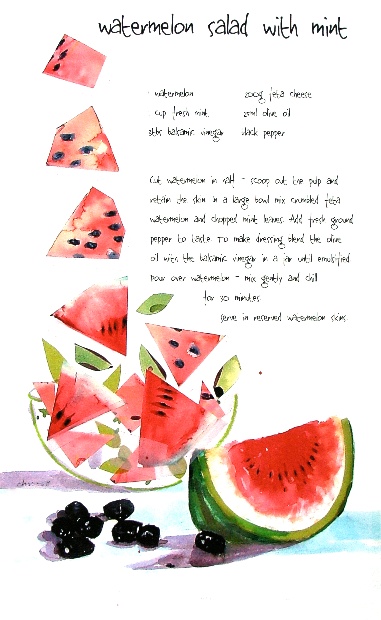 watermelon salad with mint
1 watermelon 200g feta cheese
1 cup fresh mint 25ml olive oil
3tbs balsamic vinegar black pepper
Cut watermelon in half - scoop out the pulp and
retain the skin in a large bowl mix crumbled feta
watermelon and chopped mint leaves. Add fresh ground
pepper to taste. To make dressing blend the olive
oil with the balsamic vinegar in a jar until emulsified
pour over watermelon - mix gently and chill
for 30 minutes.
serve in reserved watermelon skins.